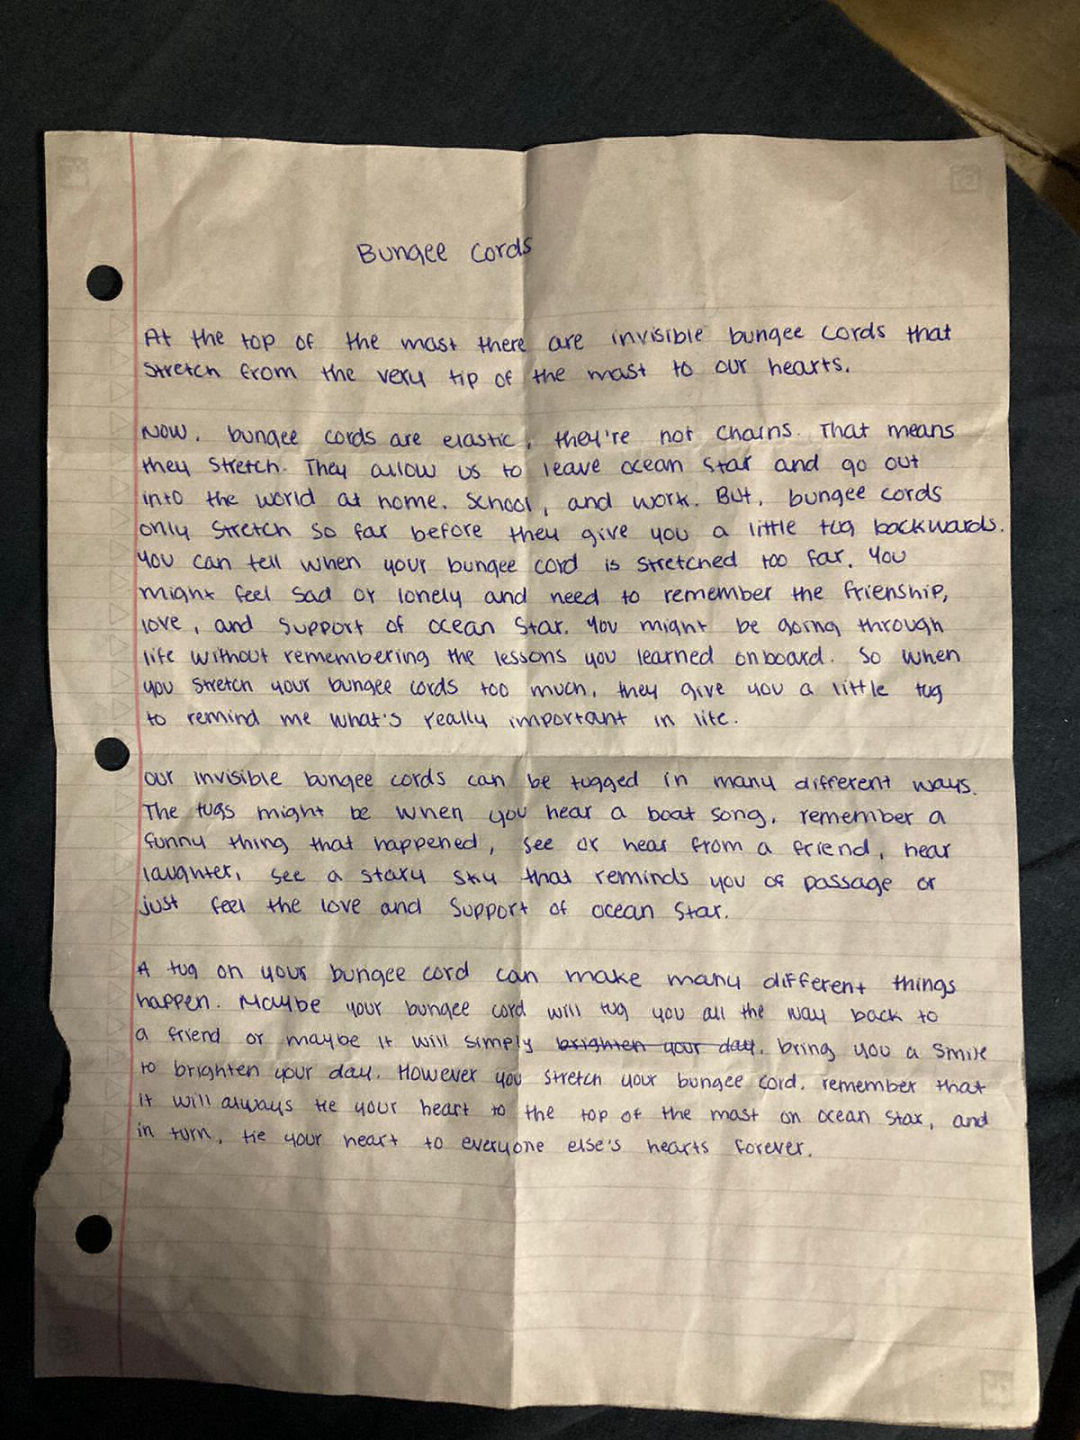 Bungee Cords
At the top of the mast there are invisible bungee cords that
stretch from the very tip of the mast to our hearts.
Now, bungee cords are elastic, they're not chains. That means
they stretch. They allow us to leave ocean star and go out
into the world at home, school, and work. But, bungee cords
only stretch so far before they give you a little tug backwards.
You can tell when your bungee cord is stretched too far. You
might feel sad or lonely and need to remember the frienship,
love, and support of ocean star. You might be going through
life without remembering the lessons you learned onboard. So when
you stretch your bungee cords too much, they give you a little tug
to remind me what's really important in life.
Our invisible bungee cords can be tugged in many different ways.
The tugs might be when you hear a boat song, remember a
funny thing that happened, see or hear from a friend, hear
laughter, see a stary sky that reminds you of passage or
just feel the love and support of ocean star.
A tug on your bungee cord can make many different things
happen. Maybe your bungee cord will tug you all the way back to
a friend or maybe it will simply brighten your day. bring you a smile
to brighten your day. However you stretch your bungee cord, remember that
it will always tie your heart to the top of the mast on ocean star, and
in turn, tie your heart to everyone else's hearts forever.